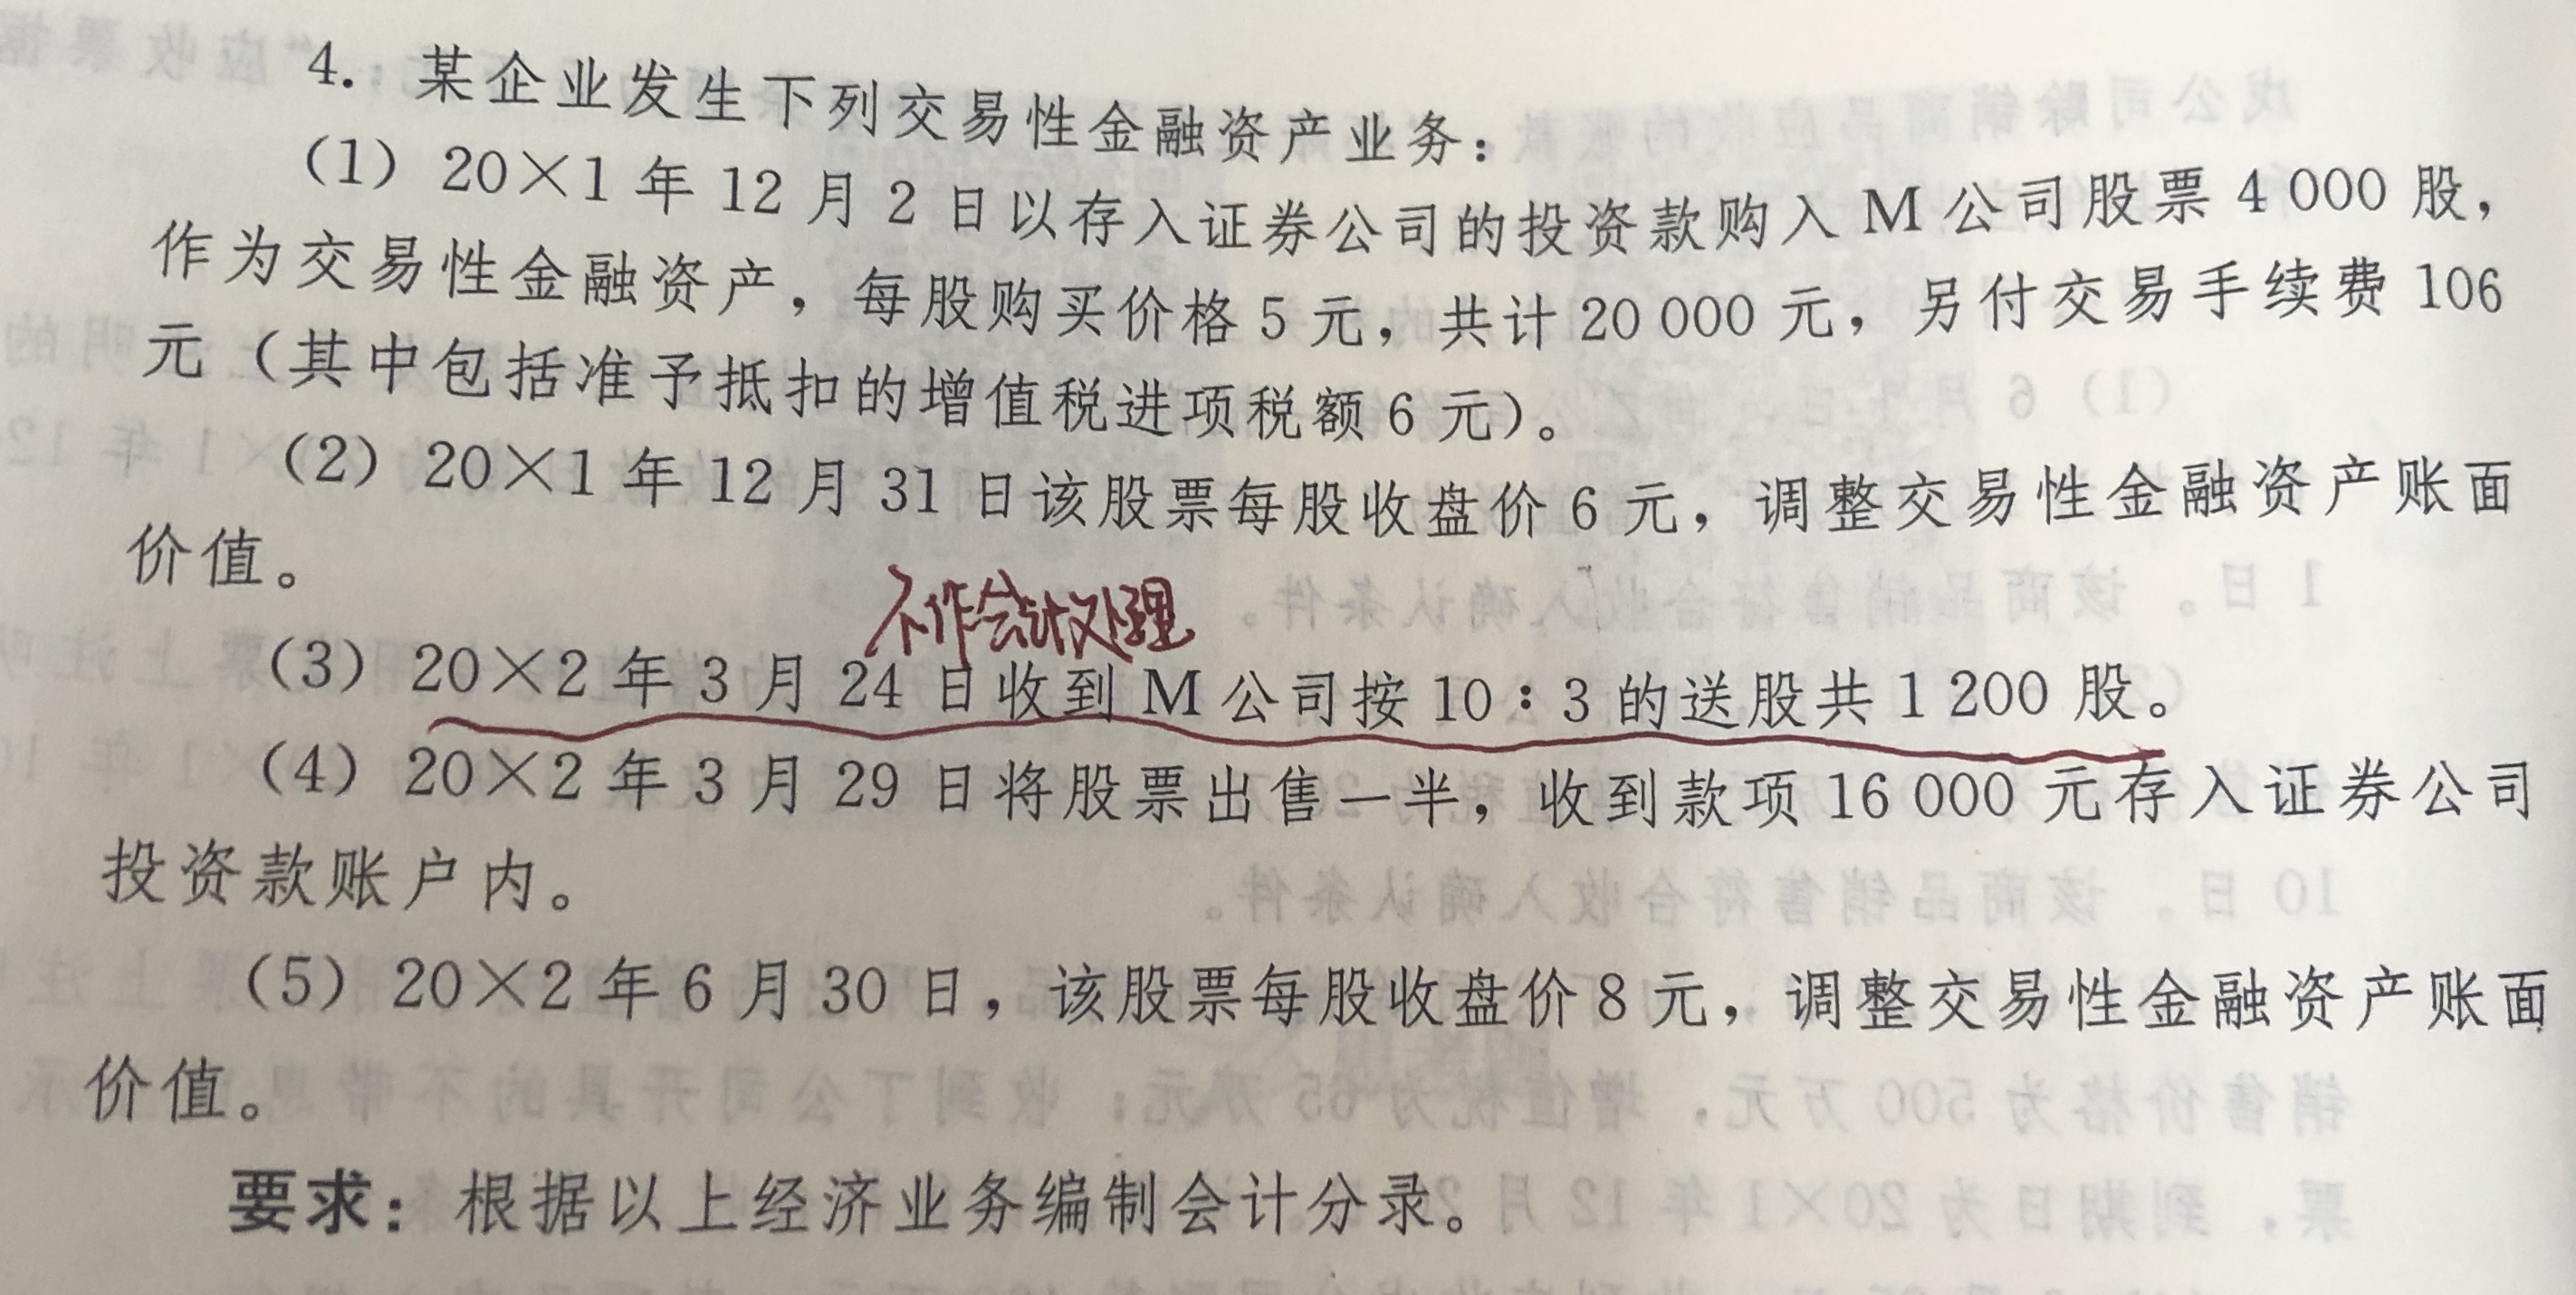 4. 某企业发生下列交易性金融资产业务：
（1）20×1 年 12 月 2 日以存入证券公司的投资款购入 M 公司股票 4 000 股，
作为交易性金融资产，每股购买价格 5 元，共计 20 000 元，另付交易手续费 106
元（其中包括准予抵扣的增值税进项税额 6 元）。
（2）20×1 年 12 月 31 日该股票每股收盘价 6 元，调整交易性金融资产账面
价值。
不作会计处理
（3）20×2 年 3 月 24 日收到 M 公司按 10：3 的送股共 1 200 股。
（4）20×2 年 3 月 29 日将股票出售一半，收到款项 16 000 元存入证券公司
投资款账户内。
（5）20×2 年 6 月 30 日，该股票每股收盘价 8 元，调整交易性金融资产账面
价值。
要求：根据以上经济业务编制会计分录。